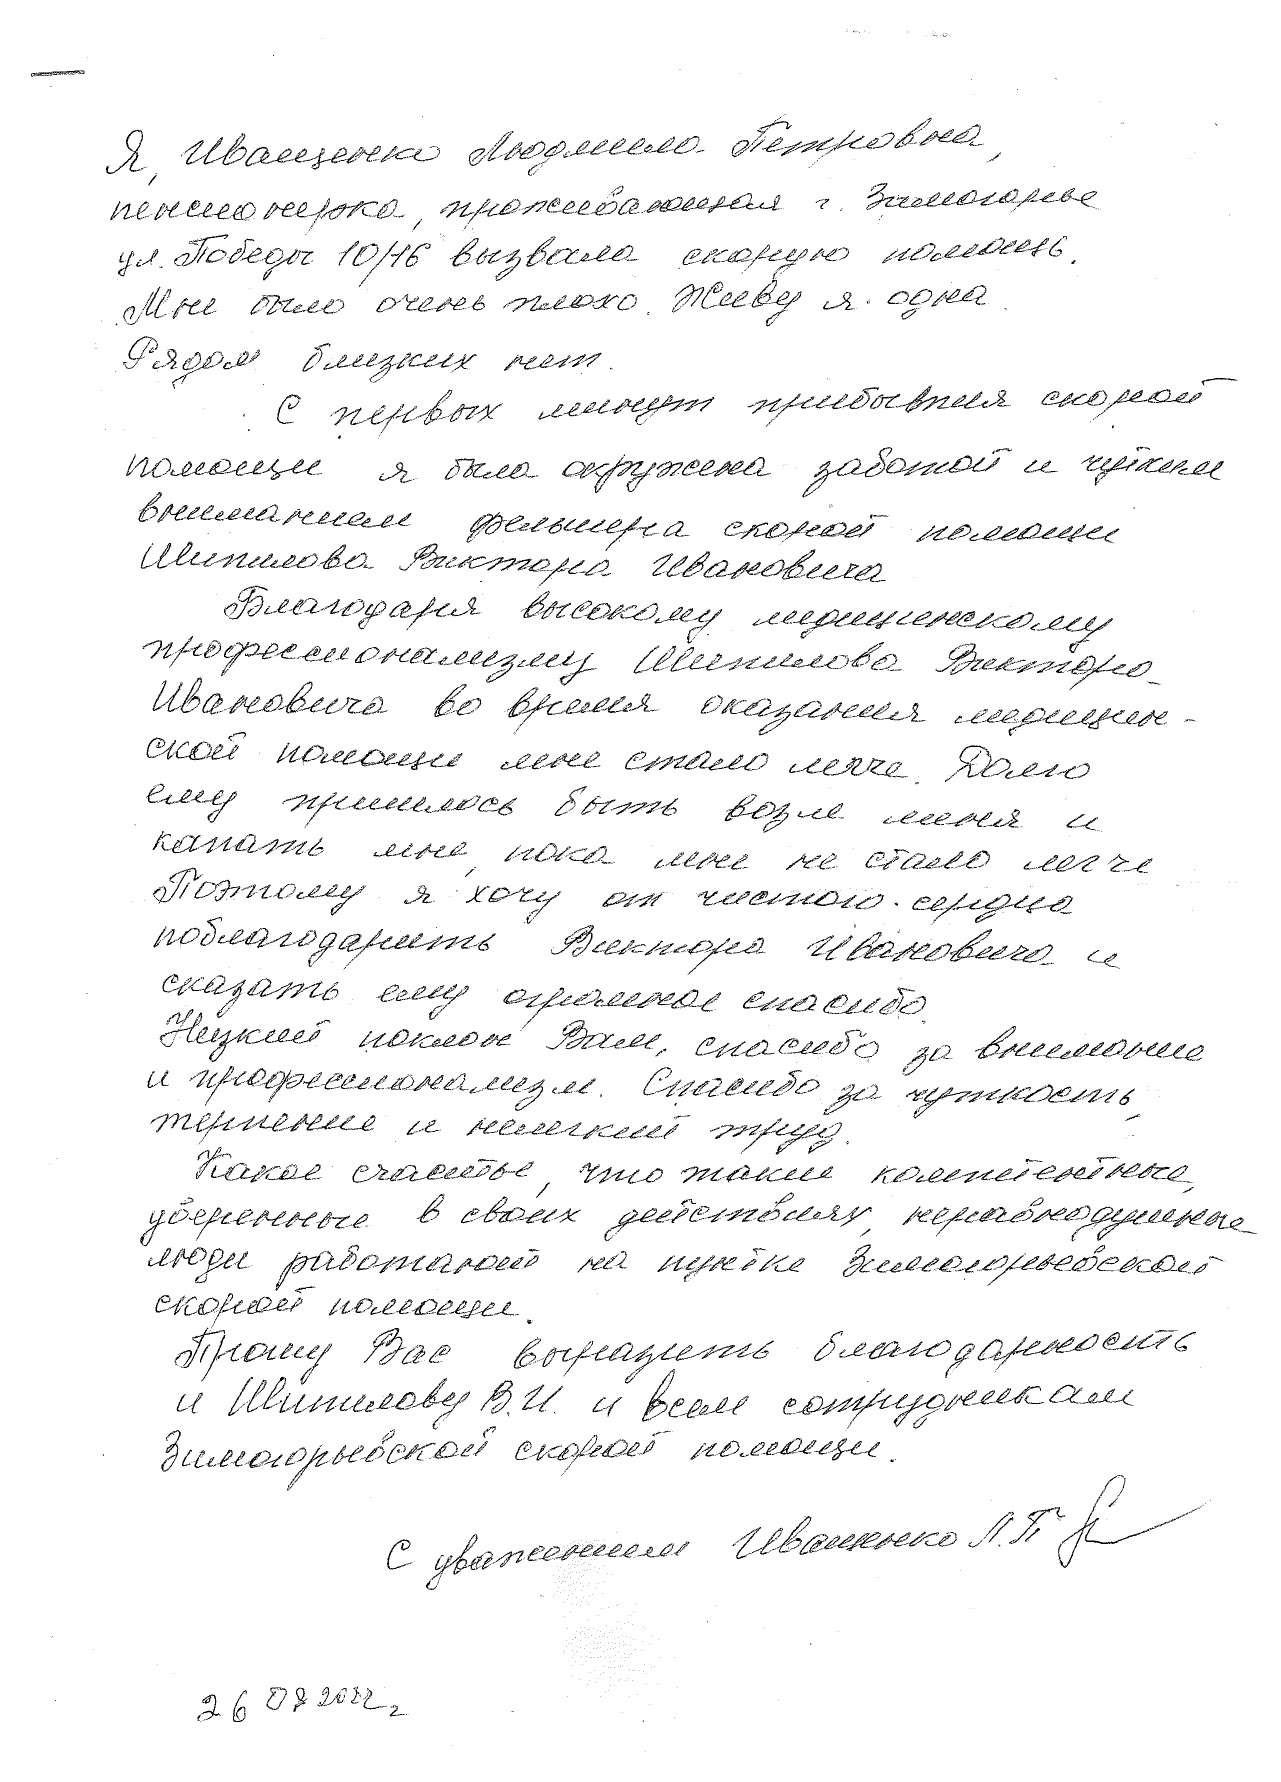 Я, Иващенко Людмила Петровна,
пенсионерка, проживающая г. Зимогорье
ул. Победы 10/16 вызвала скорую помощь.
Мне было очень плохо. Живу я одна.
Рядом близких нет.
С первых минут прибытия скорой
помощи я была окружена заботой и чутким
вниманием фельшера скорой помощи
Шипилова Виктора Ивановича
Благодаря высокому медицинскому
профессионализму Шипилова Виктора
Ивановича во время оказания медицин-
ской помощи мне стало легче. Долго
ему пришлось быть возле меня и
капать мне, пока мне не стало легче
Поэтому я хочу от чистого сердца
поблагодарить Виктора Ивановича и
сказать ему огромное спасибо.
Низкий поклон Вам, спасибо за внимание
и профессионализм. Спасибо за чуткость,
терпение и нелегкий труд.
Какое счастье, что такие компетентные,
уверенные в своих действиях, неравнодушные
люди работают на пункте Зимогорьевской
скорой помощи.
Прошу Вас выразить благодарность
и Шипилову В.И. и всем сотрудникам
Зимогорьевской скорой помощи.
С уважением Иващенко Л.П
26 07 2022 г